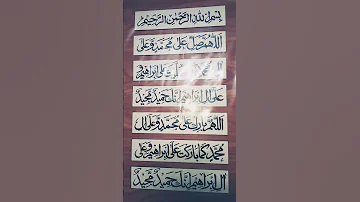 بسم الله الرحمن الرحيم
اللهم صل على محمد وعلى
ال محمد كما صليت على ابراهيم و
على ال ابراهيم انك حميد مجيد
اللهم بارك على محمد وعلى ال
محمد كما باركت على ابراهيم وعلى
ال ابراهيم انك حميد مجيد